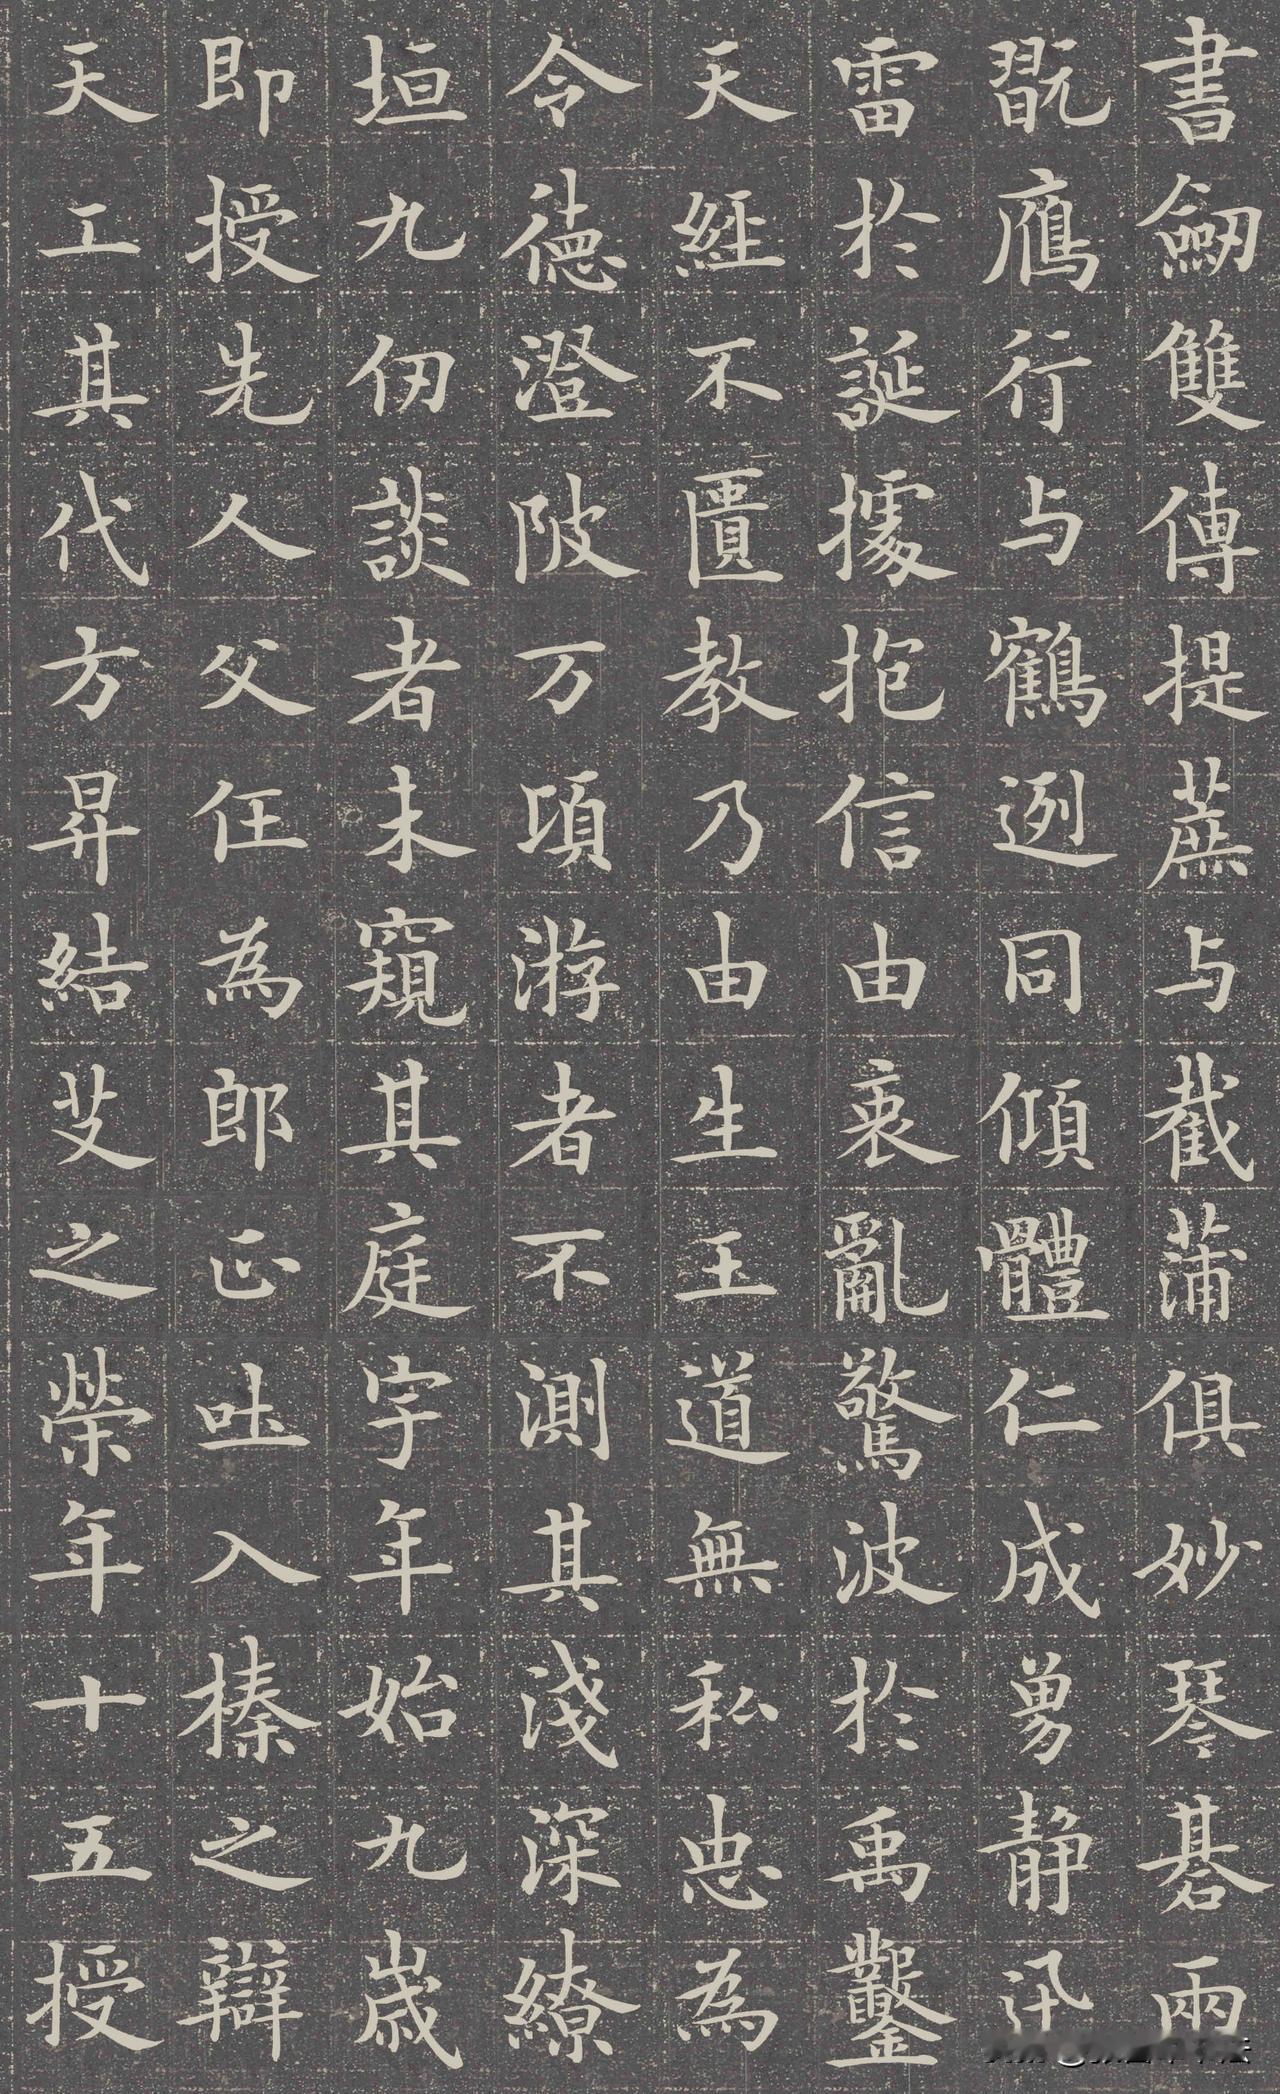 書劒雙傳提蔗与截蒲俱妙琴碁兩
翫鴈行与鶴迾同傾體仁成勇静迅
雷於誕據抱信由衷亂驚波於禹鑿
天經不匱教乃由生王道無私忠為
令德澄陂万項游者不測其淺深繚
垣九仞談者未窺其庭宇年始九歲
即授先人父任為郎正吐入榛之辯
天工其代方昇結艾之榮年十五授